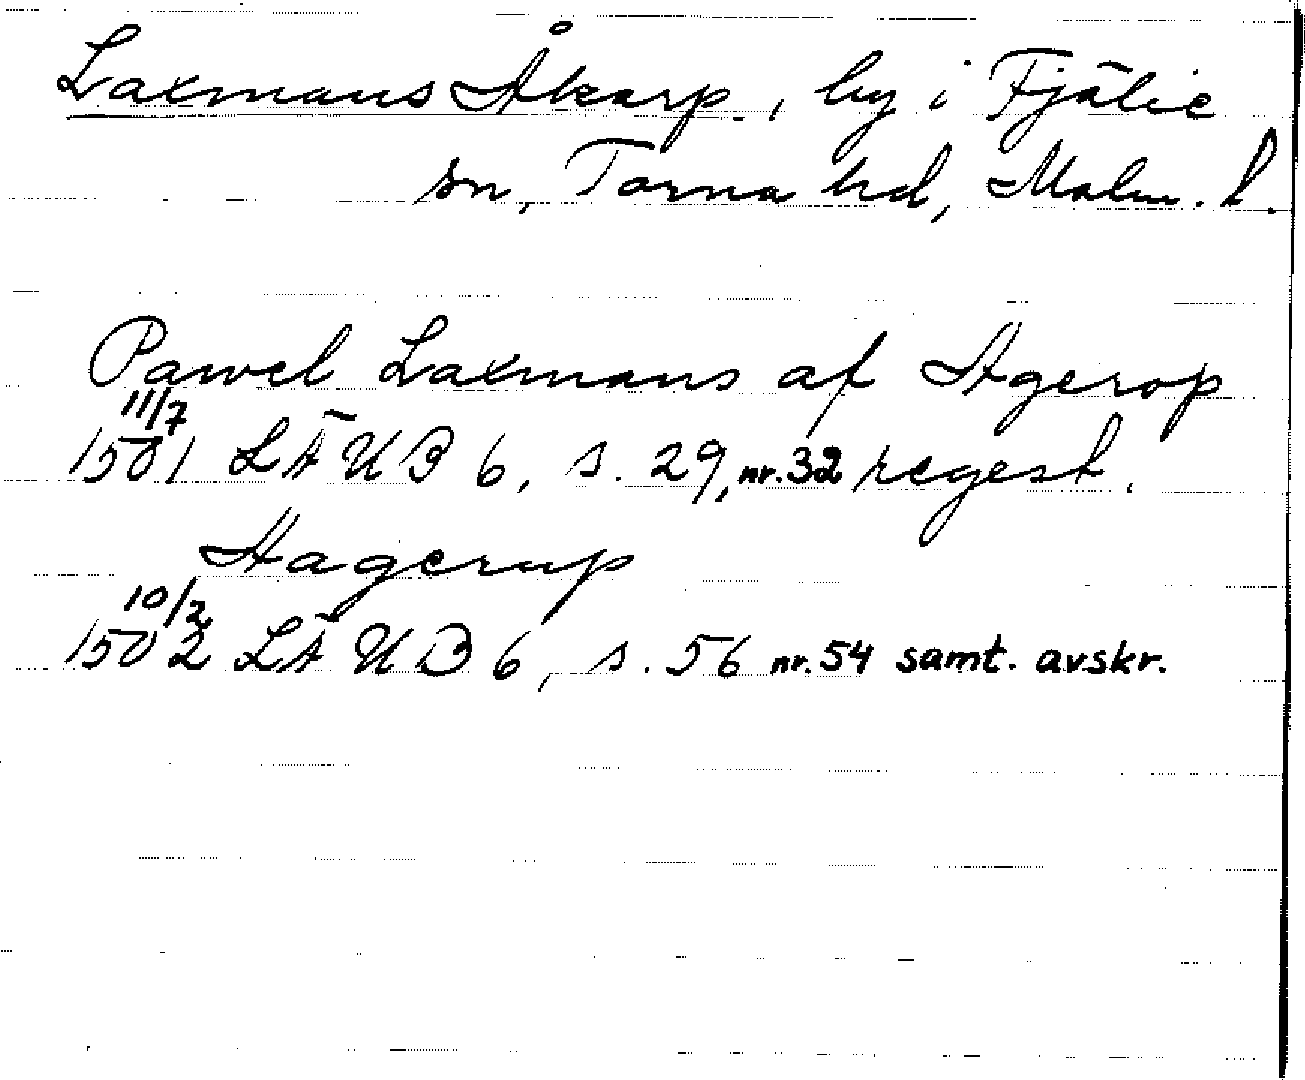 Laxmans Åkarp, by i Fjälie
sn, Torna hd, Malm. l.
Pawel Laxmans af Agerop
11/7
1501 LÄUB 6, s. 29, nr. 32 regest.
Hagerup
10/2
1502 LÄUB 6, s. 56 nr. 54 samt. avskr.